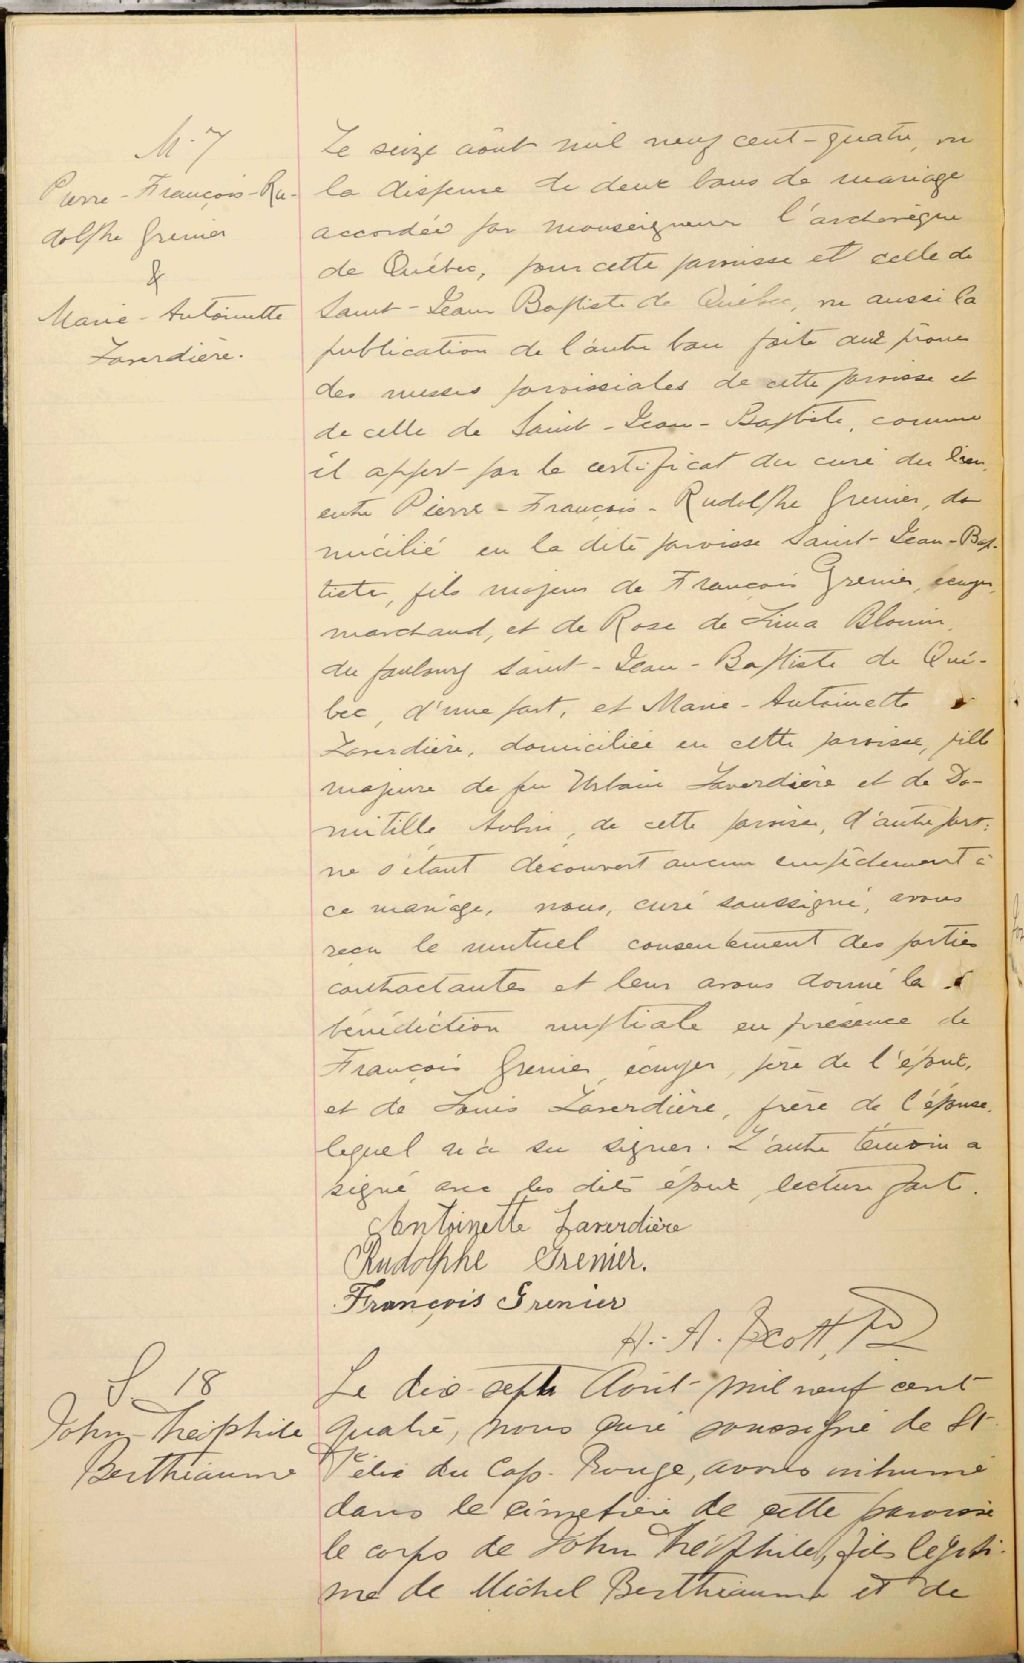 M. 7
Pierre-François-Ru-
dolphe Grenier
&
Marie-Antoinette
Laverdière.
Le seize août mil neuf cent-quatre, vu
la dispense de deux bans de mariage
accordée par monseigneur l'archevêque
de Québec, pour cette paroisse et celle de
Saint-Jean Baptiste de Québec, vu aussi la
publication de l'autre ban faite aux prônes
des messes paroissiales de cette paroisse et
de celle de Saint-Jean-Baptiste, comme
il appert par le certificat du curé du lieu,
entre Pierre-François-Rudolphe Grenier, do
micilié en la dite paroisse Saint-Jean-Bap-
tiste, fils majeur de François Grenier, écuyer,
marchand, et de Rose de Lima Blouin,
du faubourg Saint-Jean-Baptiste de Qué-
bec, d'une part, et Marie-Antoinette
Laverdière, domiciliée en cette paroisse, fille
majeure de feu Urbain Laverdière et de Do-
mitille Aubin, de cette paroisse, d'autre part;
ne s'étant découvert aucun empêchement à
ce mariage, nous, curé soussigné, avons
reçu le mutuel consentement des parties
contractantes et leur avons donné la
bénédiction nuptiale en présence de
François Grenier, écuyer, père de l'époux,
et de Louis Laverdière, frère de l'épouse,
lequel n'a su signer. L'autre témoin a
signé avec les dits époux, lecture faite.
Antoinette Laverdière
Rudolphe Grenier.
François Grenier
H.-A. Scott, Ptr
S. 18
John-Théophile
Berthiaume
Le dix-sept Août mil neuf cent
quatre, nous curé soussigné de St-
Félix du Cap-Rouge, avons inhumé
dans le cimetière de cette paroisse
le corps de John Théophile, fils légiti-
me de Michel Berthiaume et de